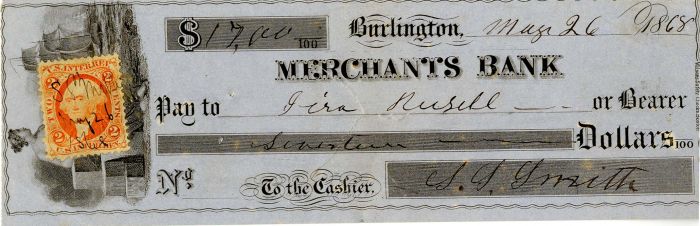 $ 17,00/100 Burlington, May 26 1868
MERCHANTS BANK
Pay to Ira Russell or Bearer
Seventeen Dollars 100
No. To the Cashier. S. S. Smith
U.S. INTER. REV.
2 2